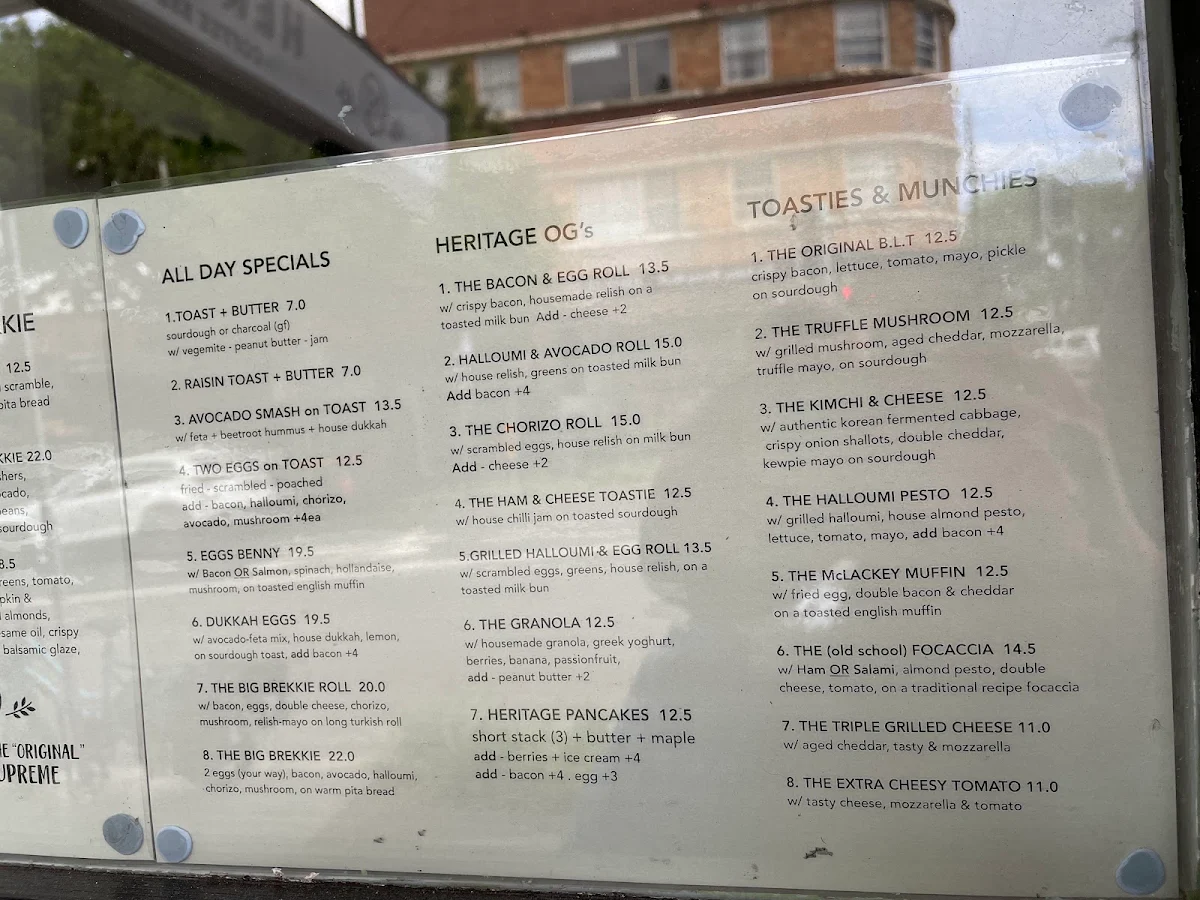 KIE
12.5
scramble,
pita bread
KKIE 22.0
shers,
ocado,
eans,
sourdough
8.5
reens, tomato,
pkin &
almonds,
same oil, crispy
balsamic glaze,
HE "ORIGINAL"
UPREME
ALL DAY SPECIALS
1.TOAST + BUTTER 7.0
sourdough or charcoal (gf)
w/ vegemite - peanut butter - jam
2. RAISIN TOAST + BUTTER 7.0
3. AVOCADO SMASH on TOAST 13.5
w/ feta + beetroot hummus + house dukkah
4. TWO EGGS on TOAST 12.5
fried - scrambled - poached
add - bacon, halloumi, chorizo,
avocado, mushroom +4ea
5. EGGS BENNY 19.5
w/ Bacon OR Salmon, spinach, hollandaise,
mushroom, on toasted english muffin
6. DUKKAH EGGS 19.5
w/ avocado-feta mix, house dukkah, lemon,
on sourdough toast, add bacon +4
7. THE BIG BREKKIE ROLL 20.0
w/ bacon, eggs, double cheese, chorizo,
mushroom, relish-mayo on long turkish roll
8. THE BIG BREKKIE 22.0
2 eggs (your way), bacon, avocado, halloumi,
chorizo, mushroom, on warm pita bread
HERITAGE OG's
1. THE BACON & EGG ROLL 13.5
w/ crispy bacon, housemade relish on a
toasted milk bun Add - cheese +2
2. HALLOUMI & AVOCADO ROLL 15.0
w/ house relish, greens on toasted milk bun
Add bacon +4
3. THE CHORIZO ROLL 15.0
w/ scrambled eggs, house relish on milk bun
Add - cheese +2
4. THE HAM & CHEESE TOASTIE 12.5
w/ house chilli jam on toasted sourdough
5.GRILLED HALLOUMI & EGG ROLL 13.5
w/ scrambled eggs, greens, house relish, on a
toasted milk bun
6. THE GRANOLA 12.5
w/ housemade granola, greek yoghurt,
berries, banana, passionfruit,
add - peanut butter +2
7. HERITAGE PANCAKES 12.5
short stack (3) + butter + maple
add - berries + ice cream +4
add - bacon +4 . egg +3
TOASTIES & MUNCHIES
1. THE ORIGINAL B.L.T 12.5
crispy bacon, lettuce, tomato, mayo, pickle
on sourdough
2. THE TRUFFLE MUSHROOM 12.5
w/ grilled mushroom, aged cheddar, mozzarella,
truffle mayo, on sourdough
3. THE KIMCHI & CHEESE 12.5
w/ authentic korean fermented cabbage,
crispy onion shallots, double cheddar,
kewpie mayo on sourdough
4. THE HALLOUMI PESTO 12.5
w/ grilled halloumi, house almond pesto,
lettuce, tomato, mayo, add bacon +4
5. THE McLACKEY MUFFIN 12.5
w/ fried egg, double bacon & cheddar
on a toasted english muffin
6. THE (old school) FOCACCIA 14.5
w/ Ham OR Salami, almond pesto, double
cheese, tomato, on a traditional recipe focaccia
7. THE TRIPLE GRILLED CHEESE 11.0
w/ aged cheddar, tasty & mozzarella
8. THE EXTRA CHEESY TOMATO 11.0
w/ tasty cheese, mozzarella & tomato